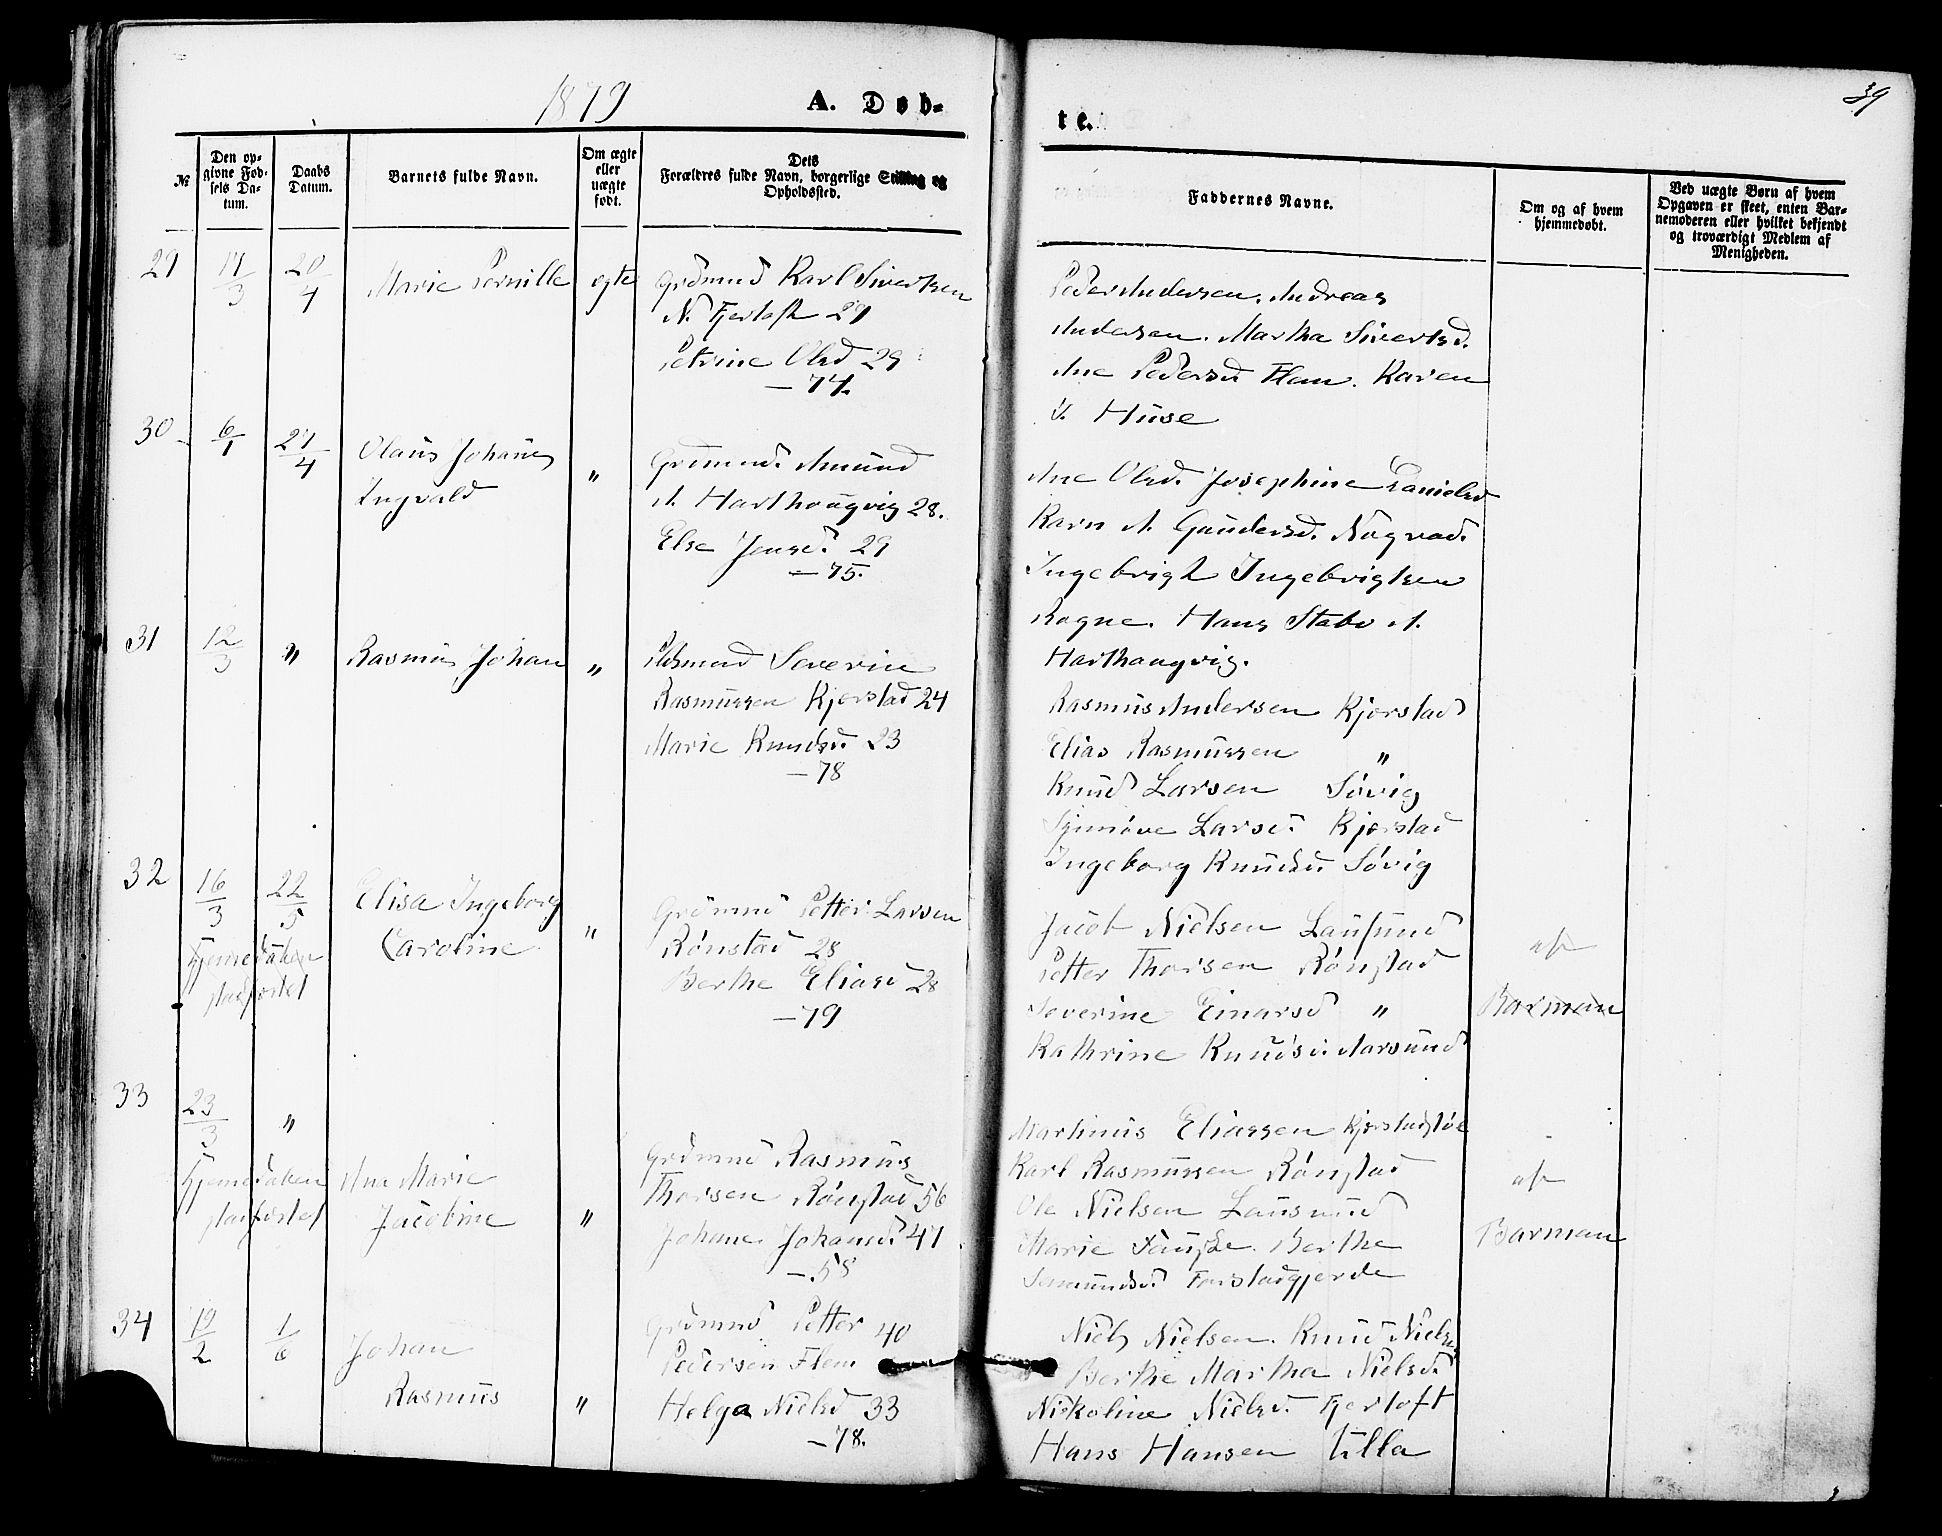 1879
A. Døb-
te.
39
№
Den op-
givne Fød-
sels Da-
tum.
Daabs
Datum.
Barnets fulde Navn.
Om ægte
eller
uægte
født.
Dets
Forældres fulde Navn, borgerlige Stilling og
Opholdssted.
Faddernes Navne.
Om og af hvem
hjemmedøbt.
Ved uægte Børn af hvem
Opgaven er skeet, enten Bar-
nemoderen eller hvilket bekjendt
og troværdigt Medlem af
Menigheden.
29
17/3
20/4
Marie Pernille
egte
Grdmnd Karl Sivertsen
N. Fjertoft 29
Petrine Olsd 29
– 74.
Peder Andersen. Andreas
Andersen. Martha Sivertsd.
Ane Pedersd Flem. Karen
Huse
30
6/1
27/4
Olaus Johannes
Ingvald
"
Grdmnd. Amund
A. Harthougvig 28.
Else Jensd. 29
– 75.
Ane Olsd. Josephine Danielsd
Karn A. Gundersd. Nogvad.
Ingebrigt Ingebrigtsen
Rogne. Hans Stabo A.
Harthaugvig.
31
12/3
"
Rasmus Johan
"
Severin
Rasmussen Kjerstad 24
Marie Knudsd. 23
– 78
Rasmus Andersen Kjerstad
Elias Rasmussen "
Knud Larsen Søvig
Synnøve Larsd. Kjerstad
Ingeborg Knudsd Søvig
32
16/3
22/5
Hjemmedaaben
stadfæstet
Elisa Ingeborg
Caroline
"
Grdmnd Petter Larsen
Rønstad 28
Berthe Eliasd 28
– 79
Jacob Nielsen Lausund
Petter Thorsen Rønstad
Severine Einarsd "
Kathrine Knudsd. Aarsund
af
Barman
33
23/3
"
Hjemmedaaben
stadfæstet
Ane Marie
Jacobine
"
Grdmnd Rasmus
Thorsen Rønstad 56
Johane Johansd. 47
– 58
Martinus Eliassen
Karl Rasmussen Rønstad
Ole Nielsen Lausund
Marie Fauske. Berthe
af
Barman
34
19/2
1/6
Johan
Rasmus
"
Grdmnd Petter 40
Pedersen Flem
Helga Nielsd 33
– 78.
Niels Nielsen. Knud Niels
Berthe Martha Nielsd.
Nikoline Nielsd. Fjertoft
Hans Hansen Ulla